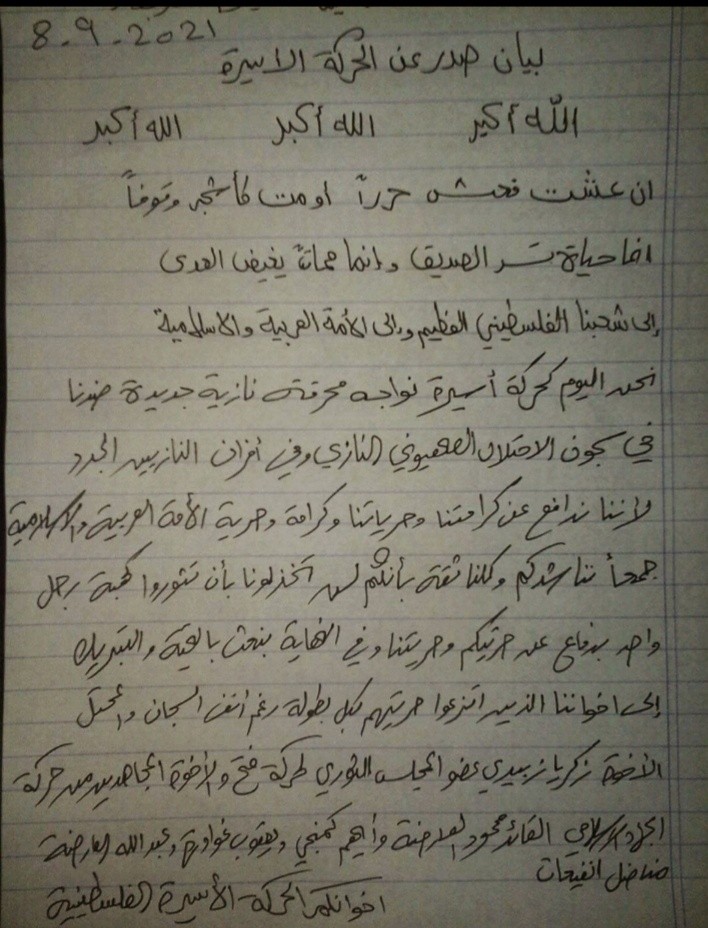 8-9-2021
بيان صدر عن الحركة الاسيرة
الله أكبر الله أكبر الله أكبر
ان عشت فعش حرراً او مت كأشجر وقوفاً
اما حياة تسر الصديق وانما مماتاً يغيض العدى
إلى شعبنا الفلسطيني العظيم والى الأمة العربية والاسلامية
نحن اليوم كحركة أسيرة نواجه محرقته نازية جديدة ضدنا
في سجون الاحتلال الصهيوني النازي وفي أفران النازيين الجدد
ولأننا ندافع عن كرامتنا وحرياتنا وكرامة وحرية الأمة العربية والاسلامية
جمعاً نناشدكم وكلنا ثقة بأنكم لن تخذلونا بأن تثوروا كهبة رجل
واحد بدفاع عن حريتكم وحريتنا وفي النهاية نبعث بالتحية والتبريك
إلى اخواننا الذين انتزعوا حريتهم بكل بطولة رغم أنف السجان والمحتل
الأخوة زكريا زبيدي عضو المجلس الثوري لحركة فتح والأخوة المجاهدين من حركة
الجهاد الاسلامي القائد محمود العارضة وأيهم كممجي ويعقوب غوادرة وعبدالله العارضة
مناضل انفيعات
اخوانكم الحركة الأسيرة الفلسطينية